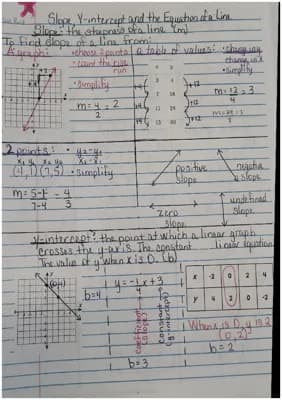 Slope, Y-intercept and the Equation of a Line
Slope: the steepness of a line (m)
To find slope of a line from:
A graph: • choose 2 points
• count the rise
run
• simplify
m = 4 = 2
2
a table of values: • change in y
change in x
• simplify
+4
+4
+4
+12
+12
+12
m = 12 = 3
4
2 points: • y₂-y₁
x₂-x₁
x₁ y₁ x₂ y₂
(4,1)(7,5) • simplify
m = 5-1 = 4
7-4 3
positive
slope
negative
slope
zero
slope
undefined
slope
y-intercept: the point at which a linear graph
crosses the y-axis. The constant linear equation.
The value of y when x is 0. (b)
(0,4)
b=4
y = -1x + 3
Coefficient
(slope)
Constant
(y-intercept)
b=3
x -2 0 2 4
y 4 2 0 -2
When x is 0, y is 2
(0,2)
b=2